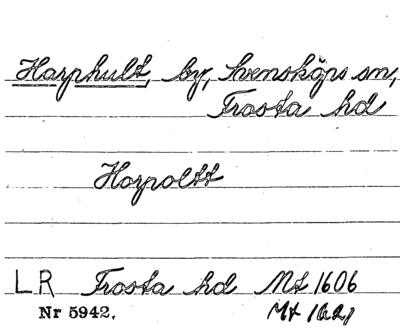 Harphult, by, Svensköps sn,
Frosta hd
Horpoltt
LR Frosta hd Mt 1606
Nr 5942. Mt 1621